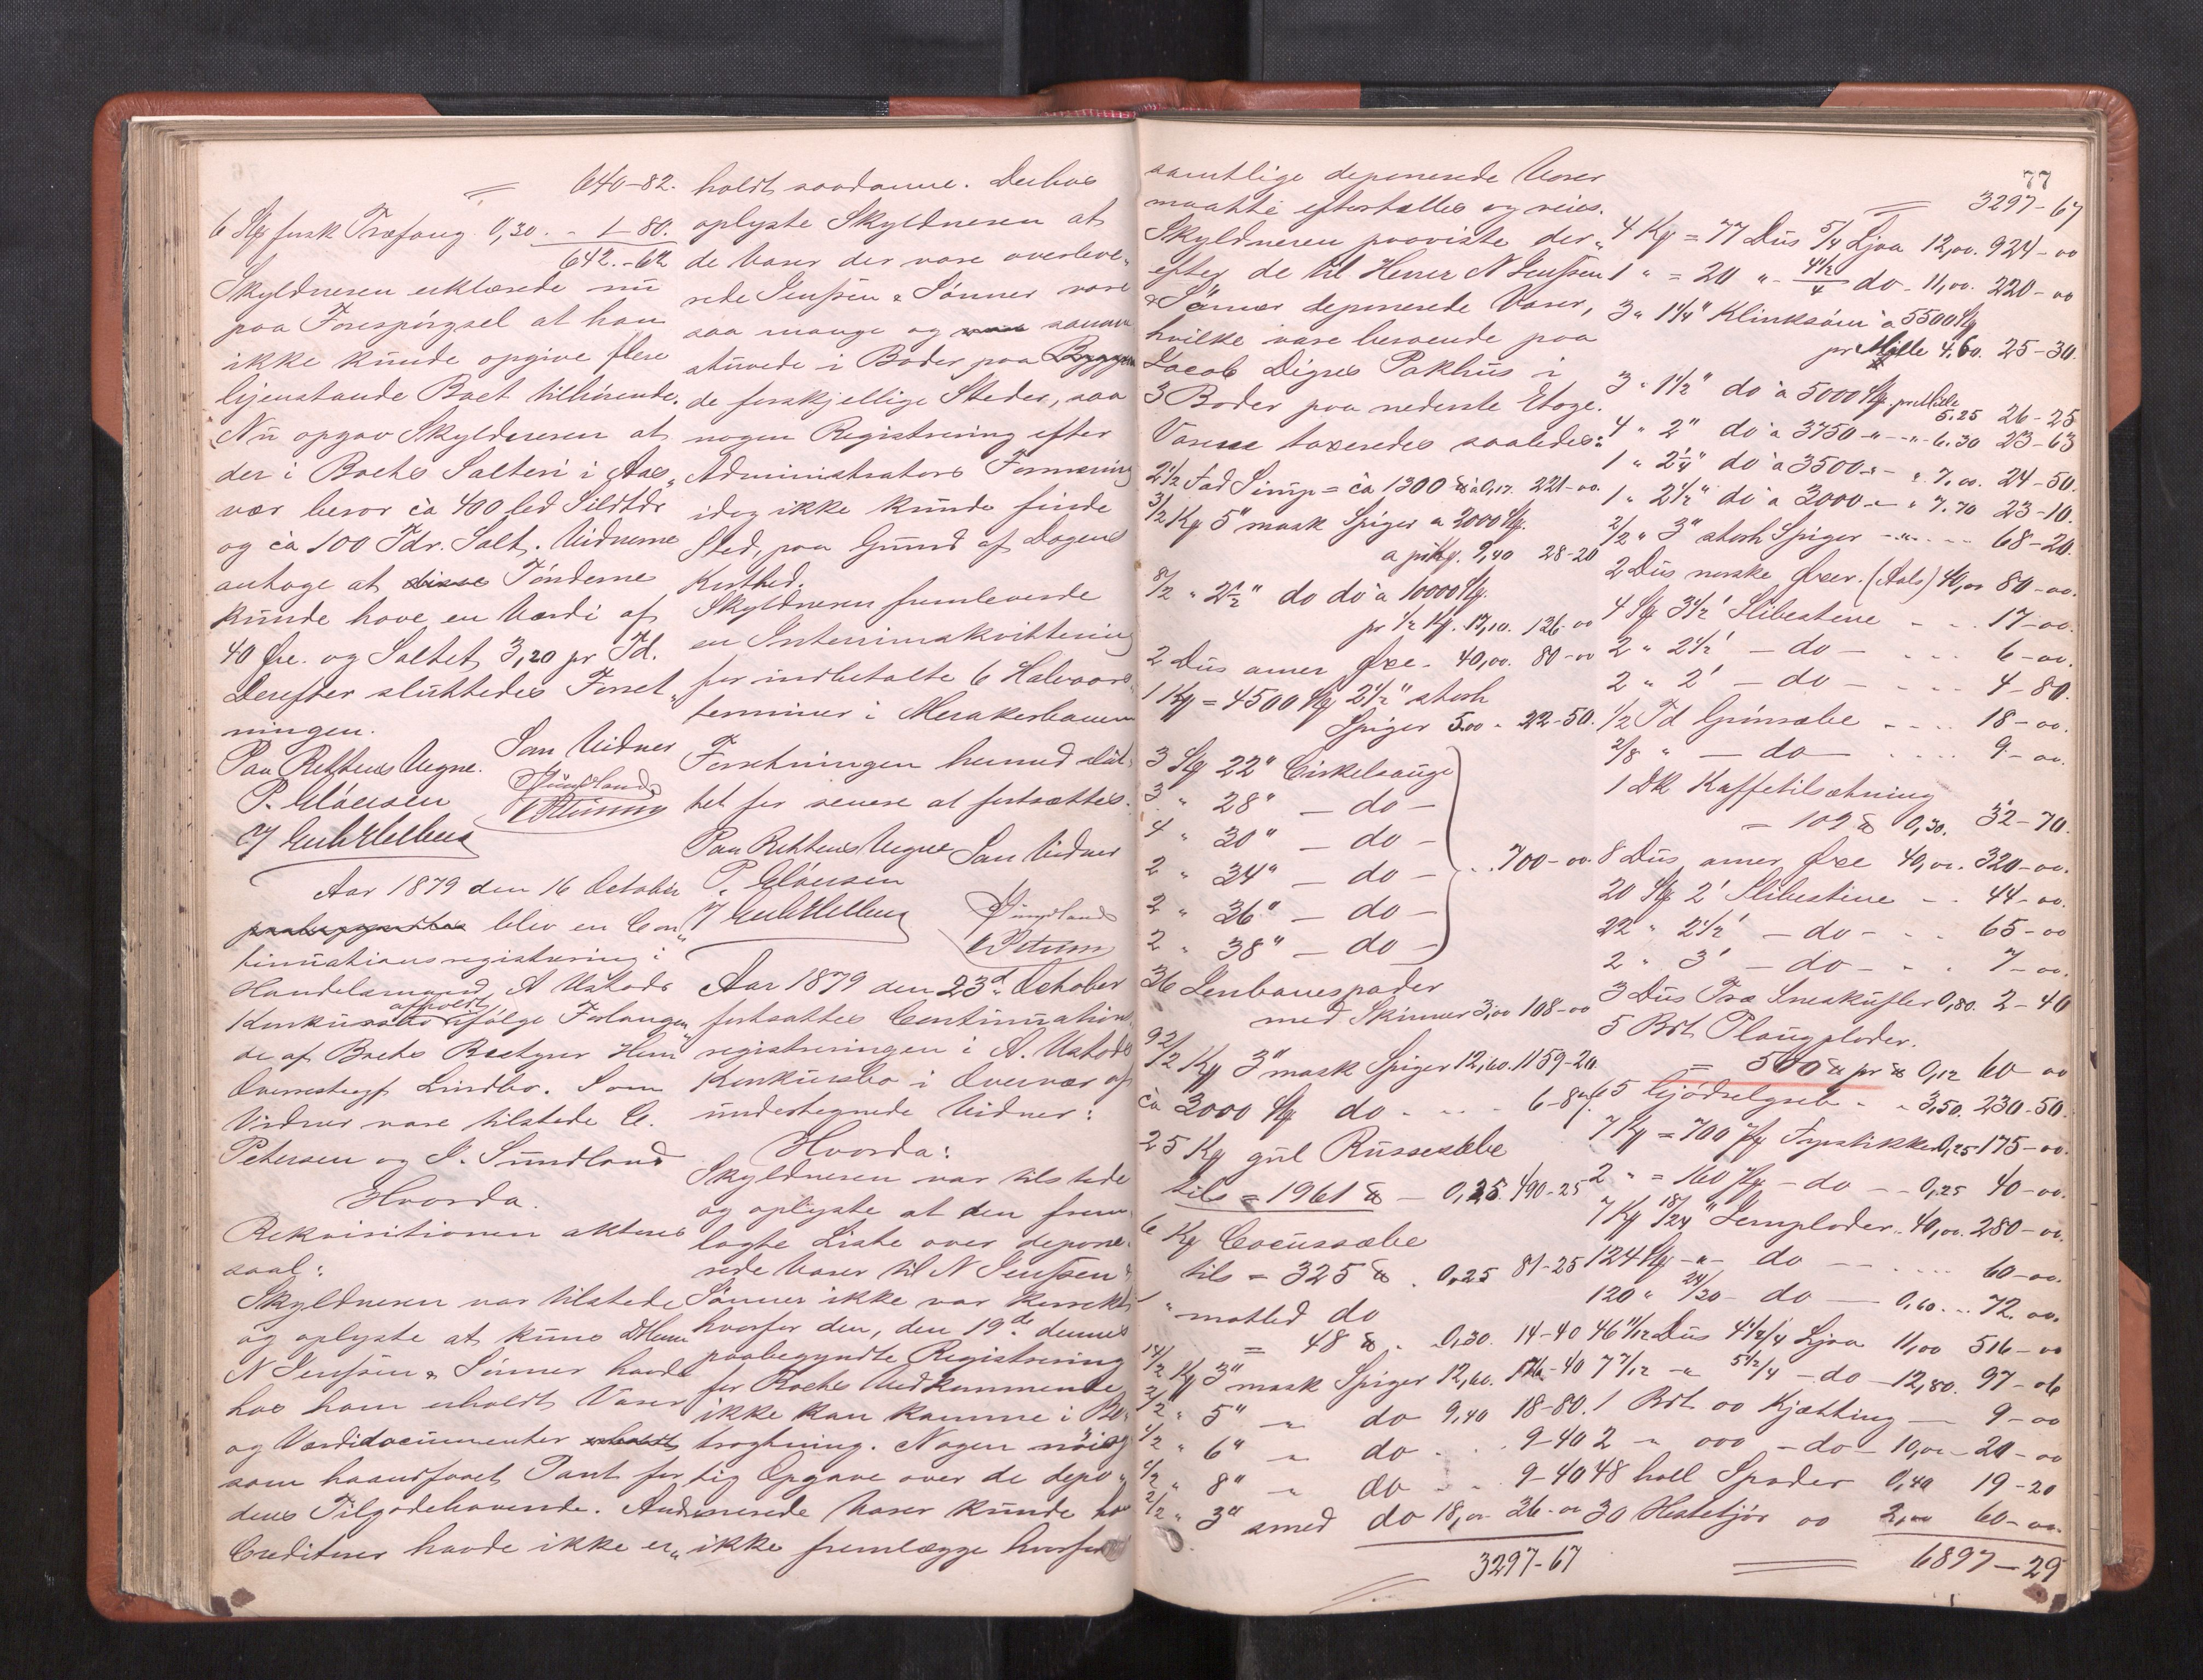 640-82.
6 Stk fersk Træfang 0,30. - 1-80.
642.-62
Skyldneren erklærede nu
paa Forespørgsel at han
ikke kunde opgive flere
Gjenstande Boet tilhørende.
Nu opgav Skyldneren at
der i Boets Salteri i Aas„
vær beror ca 400 led Sildtdr
og ca 100 Tdr. Salt. Vidnerne
antoge at disse Tønderne
kunde have en Værdi af
40 Øre. og Saltet 3,20 pr Td.
Derefter sluttedes Forret„
ningen.
Paa Rettens Vegne. Som Vidner
P. Clausen Sundland
CPetersen
Aar 1879 den 16 October
paabegyndtes blev en Con„
tinuationsregistrering i
Handelsmand A Ustads
afholdt
Konkursbo ifølge Forlangen„
de af Boets Bestyrer Herr
Overretssagf Lindbo. Som
Vidner vare tilstede C.
Petersen og S. Sundland
Hvorda.
Rekvisitionen akteres
saal:
Skyldneren var tilstede
og oplyste at kuns DHerr
N Jenssen & Sønner havde
hos ham erholdt Varer
og Værdidocumenter erholdt
som haandfaaet Pant for
deres Tilgodehavende. Andre
Creditorer havde ikke er„
holdt saadanne. Derhos
oplyste Skyldneren at
de Varer der vare overleve„
rede Jenssen & Sønner vare
saa mange og vare samm
stuvede i Boder paa Bryggen
de forskjellige Steder, saa
nogen Registrering efter
Administrators Formening
idag ikke kunde finde
Sted, paa Grund af Dagens
Korthed.
Skyldneren fremleverede
en Interimskvittering
for indbetalte 6 Halvaars„
terminer i Merakerbanen
Forretningen hermed slut„
tet for senere at fortsættes.
Paa Rettens Vegne Som Vidner
P. Clausen
Sundland
CPetersen
Aar 1879 den 23d October
fortsattes Continuations„
registreringen i A. Ustads
Konkursbo i Overvær af
undertegnede Vidner:
Hvorda:
Skyldneren var tilstede
og oplyste at den frem„
lagte Liste over depone„
rede Varer til N Jenssen &
Sønner ikke var korrekt
hvorfor den, den 19de dennes
paabegyndte Registrering
for Boets Vedkommende
ikke kan komme i Be„
tragtning. Nogen nøiag
tig Opgave over de depo„
nerede Varer kunde han
ikke fremlægge hvorfor
samtlige deponerede Varer
maatte eftertælles og veies.
Skyldneren paaviste der„
efter de til Herrer N Jenssen
& Sønner deponerede Varer,
hvilke vare beroende paa
Jacob Digres Pakhus i
3 Boder paa nederste Etage.
Varene taxeredes saaledes:
2 1/2 Fad Sirup = ca 1300 ℔ à 0,17. 221-00.
3/2 Kg 5" mask Spiger a 2000 Stk.
a pr 1/2 Kg. 9,40 28-20
8/2 " 2 1/2" do do a 10000 Stk.
pr 1/2 Kg. 17,10. 136-00
2 Dus amer Øxe - 40,00. 80-00
1 Kg = 4500 Stk 2 1/2" stork
Spiger 5.00 - 22-50.
3 Stk 22" Cirkelsauge
3 " 28" - do -
4 " 30" - do -
2 " 34" - do - .. 700-00.
2 " 36" - do -
2 " 38" - do -
36 Jernbanespader
med Skinner 3,00 108-00
92/2 Kg 3" mask Spiger 12,60. 1159-20
ca 3000 Stk do - - - 6-87.
25 Kg gul Russesæbe
tils = 1961 ℔ - 0,25. 490-25
6 Kg Cocussæbe
tils = 325 ℔ . 0,25 81-25
" matled do
= 48 ℔ . 0,30. 14-40
14/2 Kg 3" mask Spiger 12,60. 176-40
2/2 " 5" " do 9,40 18-80.
1/2 " 6" " do . . . 9-40
1/2 " 8" " do . . 9-40
2/2 " 3" smed do 18,00 36-00
3297-67
77
3297-67
4 Kg = 77 Dus 5/4 Ljaa 12,00. 924-00
1 " = 20 " - 4 1/2/4 do - 11,00. 220-00
3 " 1 1/4" Klinksøm a 5500 Stk
pr Mille 4.60. 25-30.
3 " 1 1/2" do a 5000 Stk. pr Mille
5.25 26-25
4 " 2" do a 3750 - " - " - 6.30 23-63
1 " 2 1/4" do a 3500 - " - " 7.00. 24-50.
1 " 2 1/2" do a 3000 - " - " 7.70 23-10.
2/2 " 3" stork Spiger - " - - - 68-20
2 Dus norske Øxer. (Aals) 40,00 80-00.
4 Stk 3 1/2' Slibestene - - . 17-00.
2 " 2 1/2' - do - - - - 6-00.
2 " 2' - do - - - - 4-80.
1/2 Td Grønsæbe - - - - 18-00.
2/8 " - do - . . . . 9-00.
1 Dk Kaffetilsætning
= 109 ℔ 0,30. 32-70.
8 Dus amer Øxe 40,00. 320-00.
20 Stk 2' Slibestene - - 44-00.
22 " 2 1/2' - do - - - 65-00
2 " 3' - do - - . 7-00.
3 Dus Træ Sneskufler 0,80. 2-40
5 Bdt Plougplader.
= 500 ℔ pr ℔ 0,12 60-00
65 Gjødselgreb - - 3,50. 230-50.
7 Kg = 700 Pk Fyrstikker 0,25 175-00.
2 " = 160 Pk - do - - 0,25 40-00.
7 Kg 18/24" Jernplader .. 40,00. 280-00.
124 Stk - " - do - - . . . . 60-00.
120 " 24/30 - do - 0,60 ... 72.00.
46 11/12 Dus 4 1/2/4 Ljaa 11,00 516-00
7 7/12 - " 5 1/2/4 - do - 12,80. 97-06
1 Bdt oo Kjætting - 9-00
2 " ooo - do - 10,00 - 20-00
48 holl Spader 0,40 19-20
30 Hestetjør oo 2,00 60-00.
6897-29